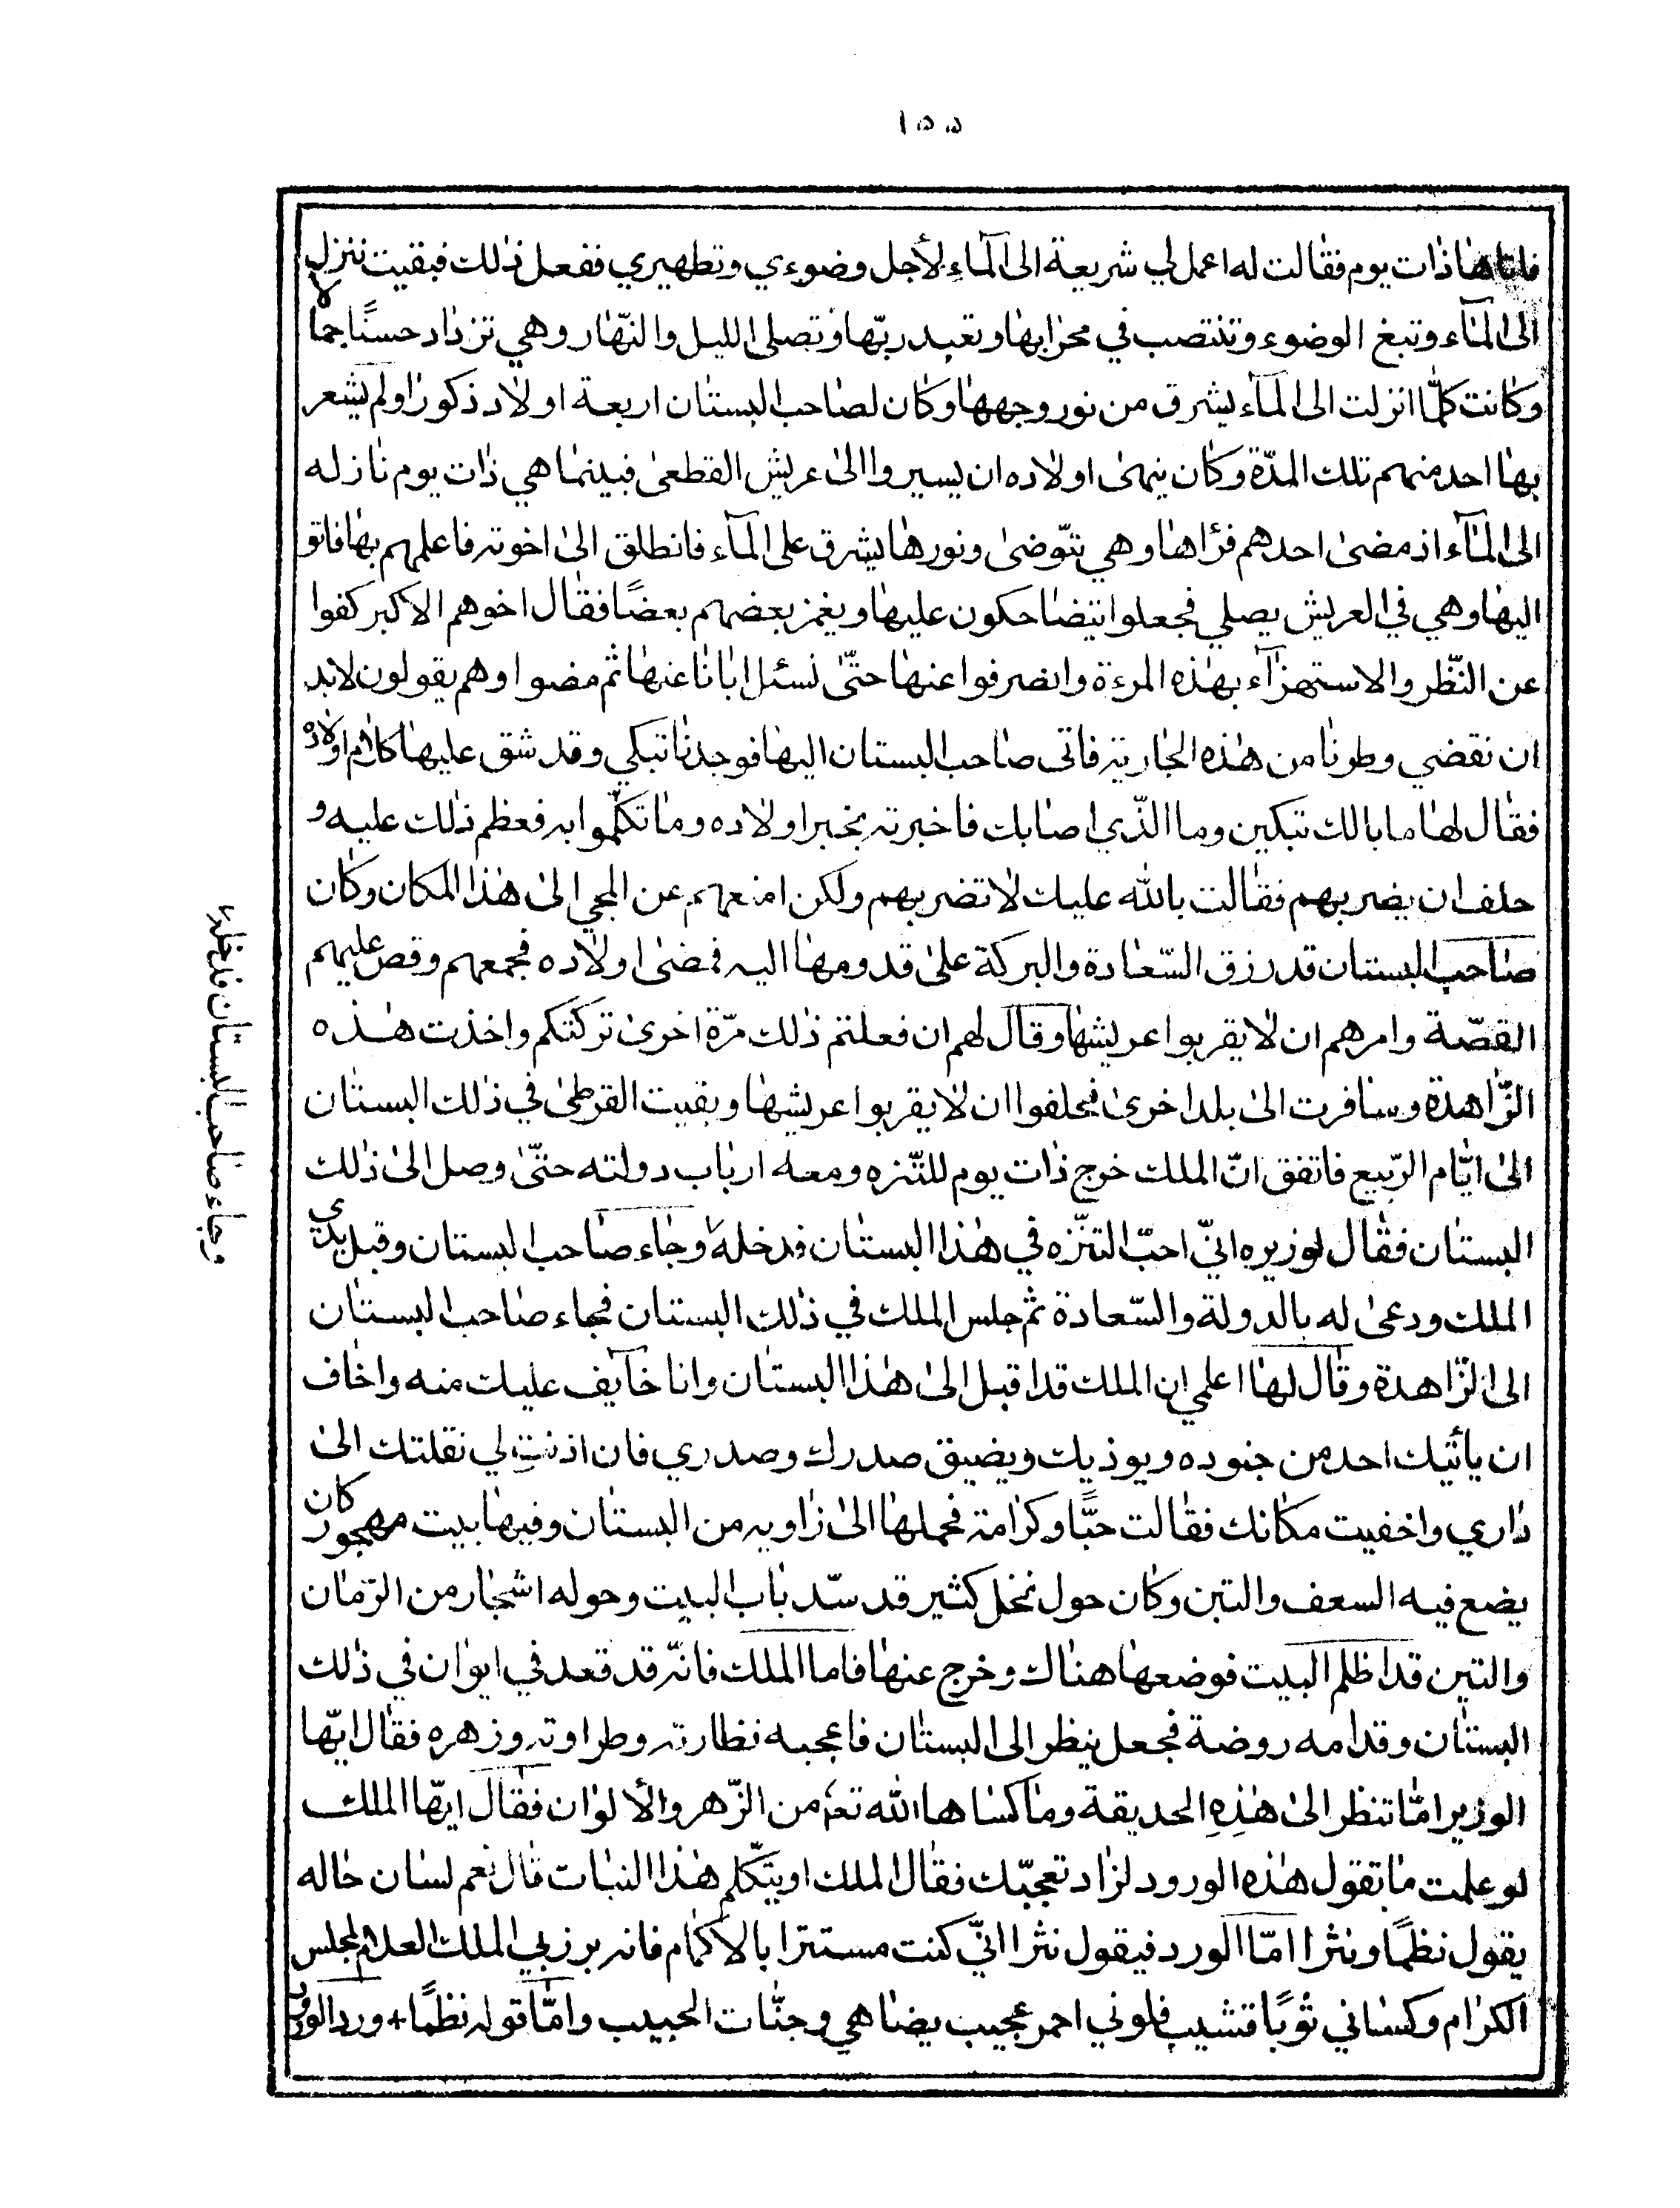 ١٥٥
فاتاها ذات يوم فقالت له اعمل لي شريعة الى المآءِ لأجل وضوءي وتطهيري ففعل ذلك فبقيت تنزل
الى المآء وتبغ الوضوء وتنتصب في محرابها وتعبد ربّها وتصلى الليل والنّهار وهي تزداد حسنًا جمالا
وكانت كلّما نزلت الى المآء يشرق من نور وجهها وكان لصاحب البستان اربعة اولاد ذكورا ولم يشعر
بها احد منهم تلك المدّة وكان ينهى اولاده ان يسيروا الى عريش القطعى فبينما هي ذات يوم نازله
الى المآء اذ مضى احدهم فرٔاها وهي تتّوضى ونورها يشرق على المآء فانطلق الى اخوته فاعلمهم بها فاتو
اليها وهي في العريش يصلي فجعلوا يتيضاحكون عليها ويغمز بعضهم بعضًا فقال اخوهم الاكبر كفوا
عن النّظر والاستهزآء بهذه المرءة وانصرفوا عنها حتّى نسئل ابانا عنها ثم مضوا وهم يقولون لابد
ان نقضي وطرنا من هذه الجارية فاتى صاحب البستان اليها فوجدنا تبكي وقد شق عليها كلام اولاده
فقال لها ما بالك تبكين وما الذّي اصابك فاخبرته بخبر اولاده وما تكلّموا به فعظم ذلك عليه و
حلف ان يضربهم فقالت بالله عليك لا تضربهم ولكن امنعهم عن المجي الى هذا المكان وكان
صاحب البستان قد رزق السّعادة والبركة على قدومها اليه فمضى اولاده فجمعهم وقص عليهم
القصّة وامرهم ان لا يقربوا عريشها وقال لهم ان فعلتم ذلك مرّة اخرى تركتكم واخذت هذه
الزّاهدة وسافرت الى بلد اخرى فحلفوا ان لا يقربوا عريشها وبقيت القرطى في ذلك البستان
الى ايّام الرّبيع فاتفق انّ الملك خرج ذات يوم للتّنزه ومعه ارباب دولته حتّى وصل الى ذلك
البستان فقال لوزيره انيّ احبّ التنزّه في هذا البستان فدخله وجاء صاحب البستان وقبل يدي
الملك ودعى له بالدولة والسّعادة ثم جلس الملك في ذلك البستان فجاء صاحب البستان
الى الزّاهدة وقال لها اعلمي ان الملك قد اقبل الى هذا البستان وانا خآيف عليك منه واخاف
ان يأتيك احد من جنوده ويوذيك ويضيق صدرك وصدري فان اذنتِ لي نقلتك الى
داري واخفيت مكانك فقالت حبًّا وكرامة فحملها الى زاويه من البستان وفيها بيت مهجور كان
يضع فيه السعف والتبن وكان حول نخل كثير قد سدّ باب البيت وحوله اشجار من الرّمان
والتين قد اظلم البيت فوضعها هناك وخرج عنها فاما الملك فانّه قد قعد في ايوان في ذلك
البستان وقدامه روضة فجعل ينظر الى البستان فاعجبه نظارته وطراوته وزهره فقال ايّها
الوزير امّا تنظر الى هذِهِ الحديقة وما كساها الله تعٰ من الزّهر والألوان فقال ايّها الملك
لو علمت ما تقول هذه الورود لزاد تعجبّك فقال الملك او يتّكلم هذا النبات قال نعم لسان حاله
يقول نظمًا ونثرا امّا الورد فيقول نثرا انيّ كنت مستترا بالاكمام فانه برز بي الملك العلام لمجلس
الكرام وكساني ثوبًا قشيب فلوني احمر عجيب يضاهي وجنّات الحبيب وامّا قوله نظمًا + ورد الورد
وجاء صاحب البستان فدخله